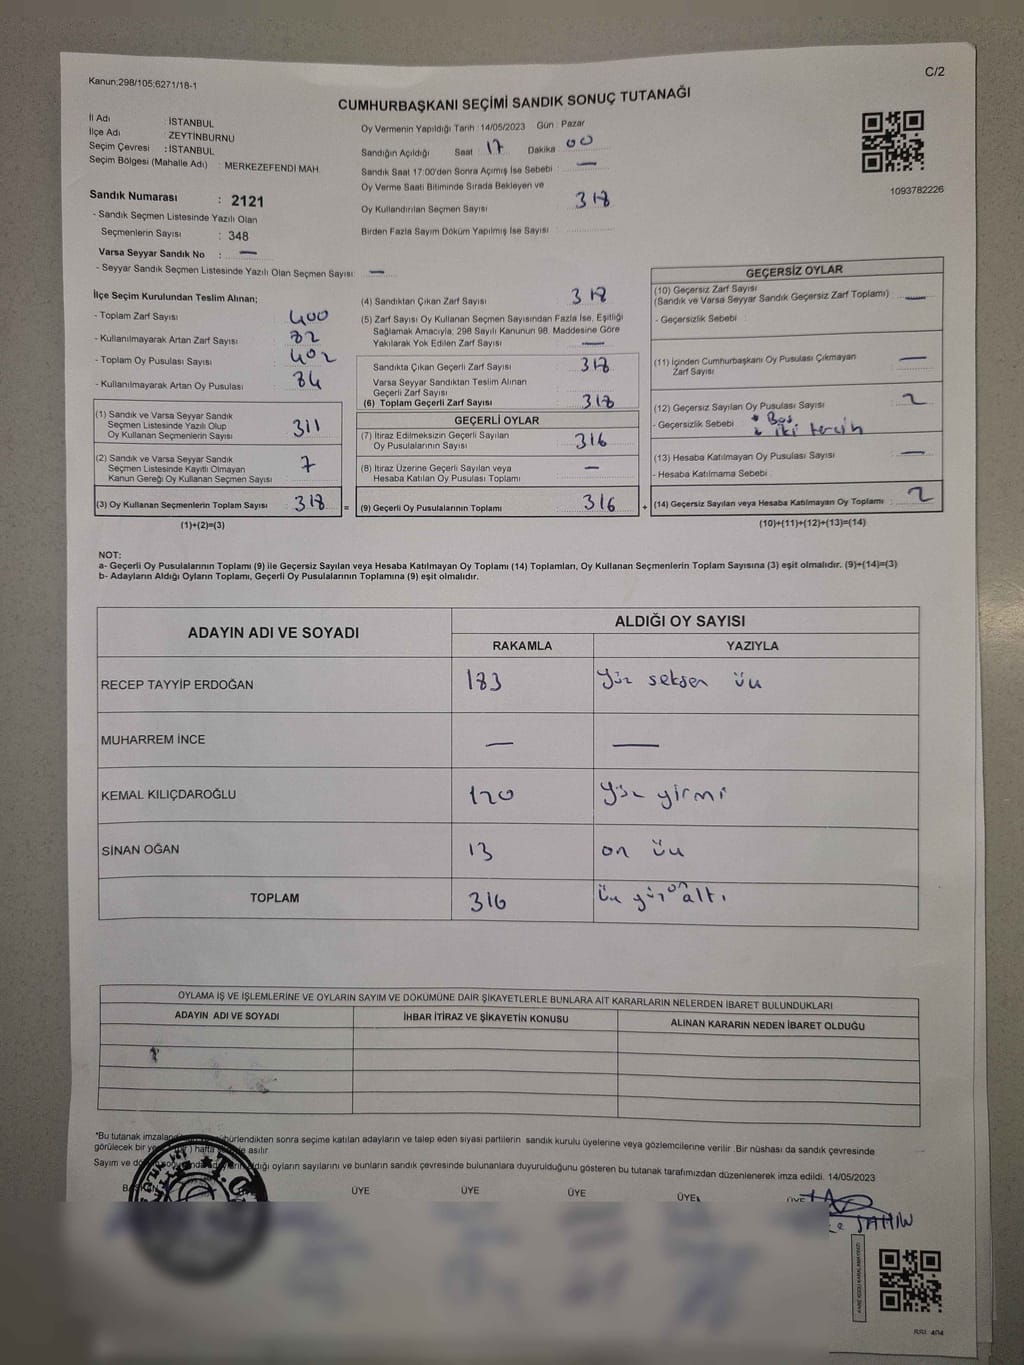 Kanun:298/105;6271/18-1
C/2
CUMHURBAŞKANI SEÇİMİ SANDIK SONUÇ TUTANAĞI
İl Adı : İSTANBUL
İlçe Adı : ZEYTİNBURNU
Seçim Çevresi : İSTANBUL
Seçim Bölgesi (Mahalle Adı) : MERKEZEFENDİ MAH.
Sandık Numarası : 2121
- Sandık Seçmen Listesinde Yazılı Olan
Seçmenlerin Sayısı : 348
Varsa Seyyar Sandık No : —
- Seyyar Sandık Seçmen Listesinde Yazılı Olan Seçmen Sayısı: —
Oy Vermenin Yapıldığı Tarih :14/05/2023 Gün : Pazar
Sandığın Açıldığı Saat : 17 Dakika : 00
Sandık Saat 17:00'den Sonra Açımış İse Sebebi : —
Oy Verme Saati Bitiminde Sırada Bekleyen ve
Oy Kullandırılan Seçmen Sayısı : 318
Birden Fazla Sayım Döküm Yapılmış İse Sayısı :
1093782226
İlçe Seçim Kurulundan Teslim Alınan;
- Toplam Zarf Sayısı : 400
- Kullanılmayarak Artan Zarf Sayısı : 82
- Toplam Oy Pusulası Sayısı : 402
- Kullanılmayarak Artan Oy Pusulası : 84
(1) Sandık ve Varsa Seyyar Sandık
Seçmen Listesinde Yazılı Olup
Oy Kullanan Seçmenlerin Sayısı : 311
(2) Sandık ve Varsa Seyyar Sandık
Seçmen Listesinde Kayıtlı Olmayan
Kanun Gereği Oy Kullanan Seçmen Sayısı : 7
(3) Oy Kullanan Seçmenlerin Toplam Sayısı : 318 =
(1)+(2)=(3)
(4) Sandıktan Çıkan Zarf Sayısı : 318
(5) Zarf Sayısı Oy Kullanan Seçmen Sayısından Fazla İse, Eşitliği
Sağlamak Amacıyla; 298 Sayılı Kanunun 98. Maddesine Göre
Yakılarak Yok Edilen Zarf Sayısı : —
Sandıkta Çıkan Geçerli Zarf Sayısı : 318
Varsa Seyyar Sandıktan Teslim Alınan
Geçerli Zarf Sayısı :
(6) Toplam Geçerli Zarf Sayısı : 318
GEÇERLİ OYLAR
(7) İtiraz Edilmeksizin Geçerli Sayılan
Oy Pusulalarının Sayısı : 316
(8) İtiraz Üzerine Geçerli Sayılan veya
Hesaba Katılan Oy Pusulası Toplamı : —
(9) Geçerli Oy Pusulalarının Toplamı : 316 +
GEÇERSİZ OYLAR
(10) Geçersiz Zarf Sayısı
(Sandık ve Varsa Seyyar Sandık Geçersiz Zarf Toplamı) : —
- Geçersizlik Sebebi :
(11) İçinden Cumhurbaşkanı Oy Pusulası Çıkmayan
Zarf Sayısı : —
(12) Geçersiz Sayılan Oy Pusulası Sayısı : 2
- Geçersizlik Sebebi : Boş
iki tercih
(13) Hesaba Katılmayan Oy Pusulası Sayısı : —
- Hesaba Katılmama Sebebi :
(14) Geçersiz Sayılan veya Hesaba Katılmayan Oy Toplamı : 2
(10)+(11)+(12)+(13)=(14)
NOT:
a- Geçerli Oy Pusulalarının Toplamı (9) ile Geçersiz Sayılan veya Hesaba Katılmayan Oy Toplamı (14) Toplamları, Oy Kullanan Seçmenlerin Toplam Sayısına (3) eşit olmalıdır. (9)+(14)=(3)
b- Adayların Aldığı Oyların Toplamı, Geçerli Oy Pusulalarının Toplamına (9) eşit olmalıdır.
ADAYIN ADI VE SOYADI
ALDIĞI OY SAYISI
RAKAMLA YAZIYLA
RECEP TAYYİP ERDOĞAN 183 yüz seksen üç
MUHARREM İNCE — —
KEMAL KILIÇDAROĞLU 120 yüz yirmi
SİNAN OĞAN 13 on üç
TOPLAM 316 üç yüz on altı
OYLAMA İŞ VE İŞLEMLERİNE VE OYLARIN SAYIM VE DÖKÜMÜNE DAİR ŞİKAYETLERLE BUNLARA AİT KARARLARIN NELERDEN İBARET BULUNDUKLARI
ADAYIN ADI VE SOYADI İHBAR İTİRAZ VE ŞİKAYETİN KONUSU ALINAN KARARIN NEDEN İBARET OLDUĞU
*Bu tutanak sonra seçime katılan adayların ve talep eden siyasi partilerin sandık kurulu üyelerine veya gözlemcilerine verilir .Bir nüshası da sandık çevresinde
görülecek bir hafta asılır.
Sayım ve oyların sayılarını ve bunların sandık çevresinde bulunanlara duyurulduğunu gösteren bu tutanak tarafımızdan düzenlenerek imza edildi. 14/05/2023
ÜYE ÜYE ÜYE ÜYE ÜYE
ŞAHİN
T.C.